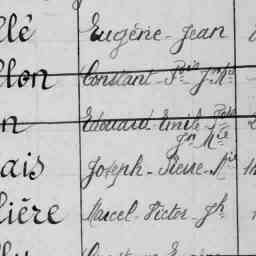 llé Eugène-Jean
llon Constant-Pre Jn Mie
n Edouard Emile
Jn Mie
ais Joseph-Pierre-Mie
lière Marcel-Victor-Jh